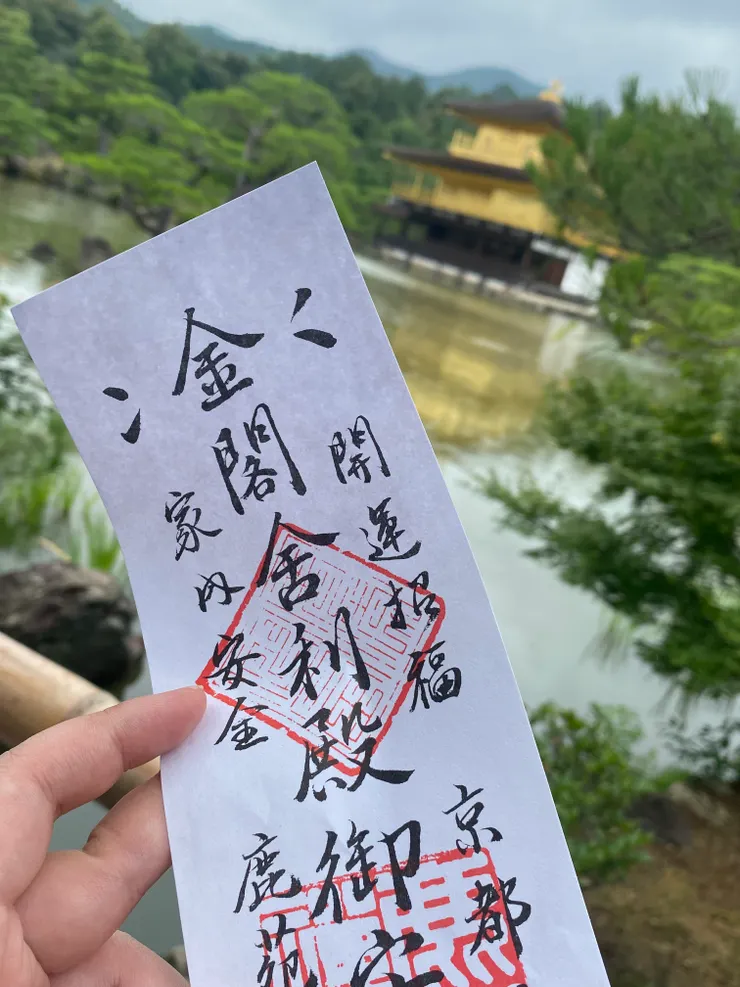 開運招福
金閣舍利殿御守
家内安全
京都
鹿苑